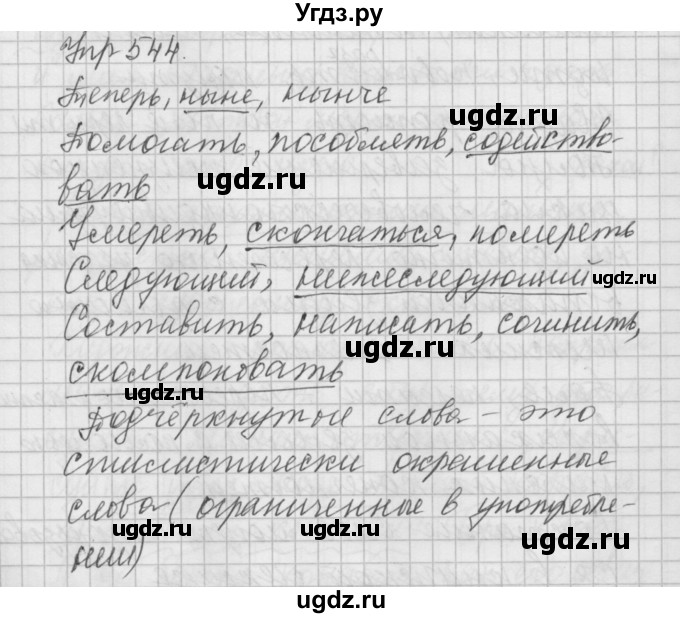 Угдз.ру
Упр 544.
Теперь, ныне, нынче
ugdz.ru
Помогать, пособлять, содейство-
ugdz.ru
вать
Умереть, скончаться, помереть
ugdz.ru
Следующий, нижеследующий
ugdz.ru
Составить, написать, сочинить,
ugdz.ru
скомпоновать
ugdz.ru
Подчёркнутые слова – это
стилистически окрашенные
ugdz.ru
слова (ограниченные в употребле-
ugdz.ru
ugdz.ru
нии)
ugdz.ru